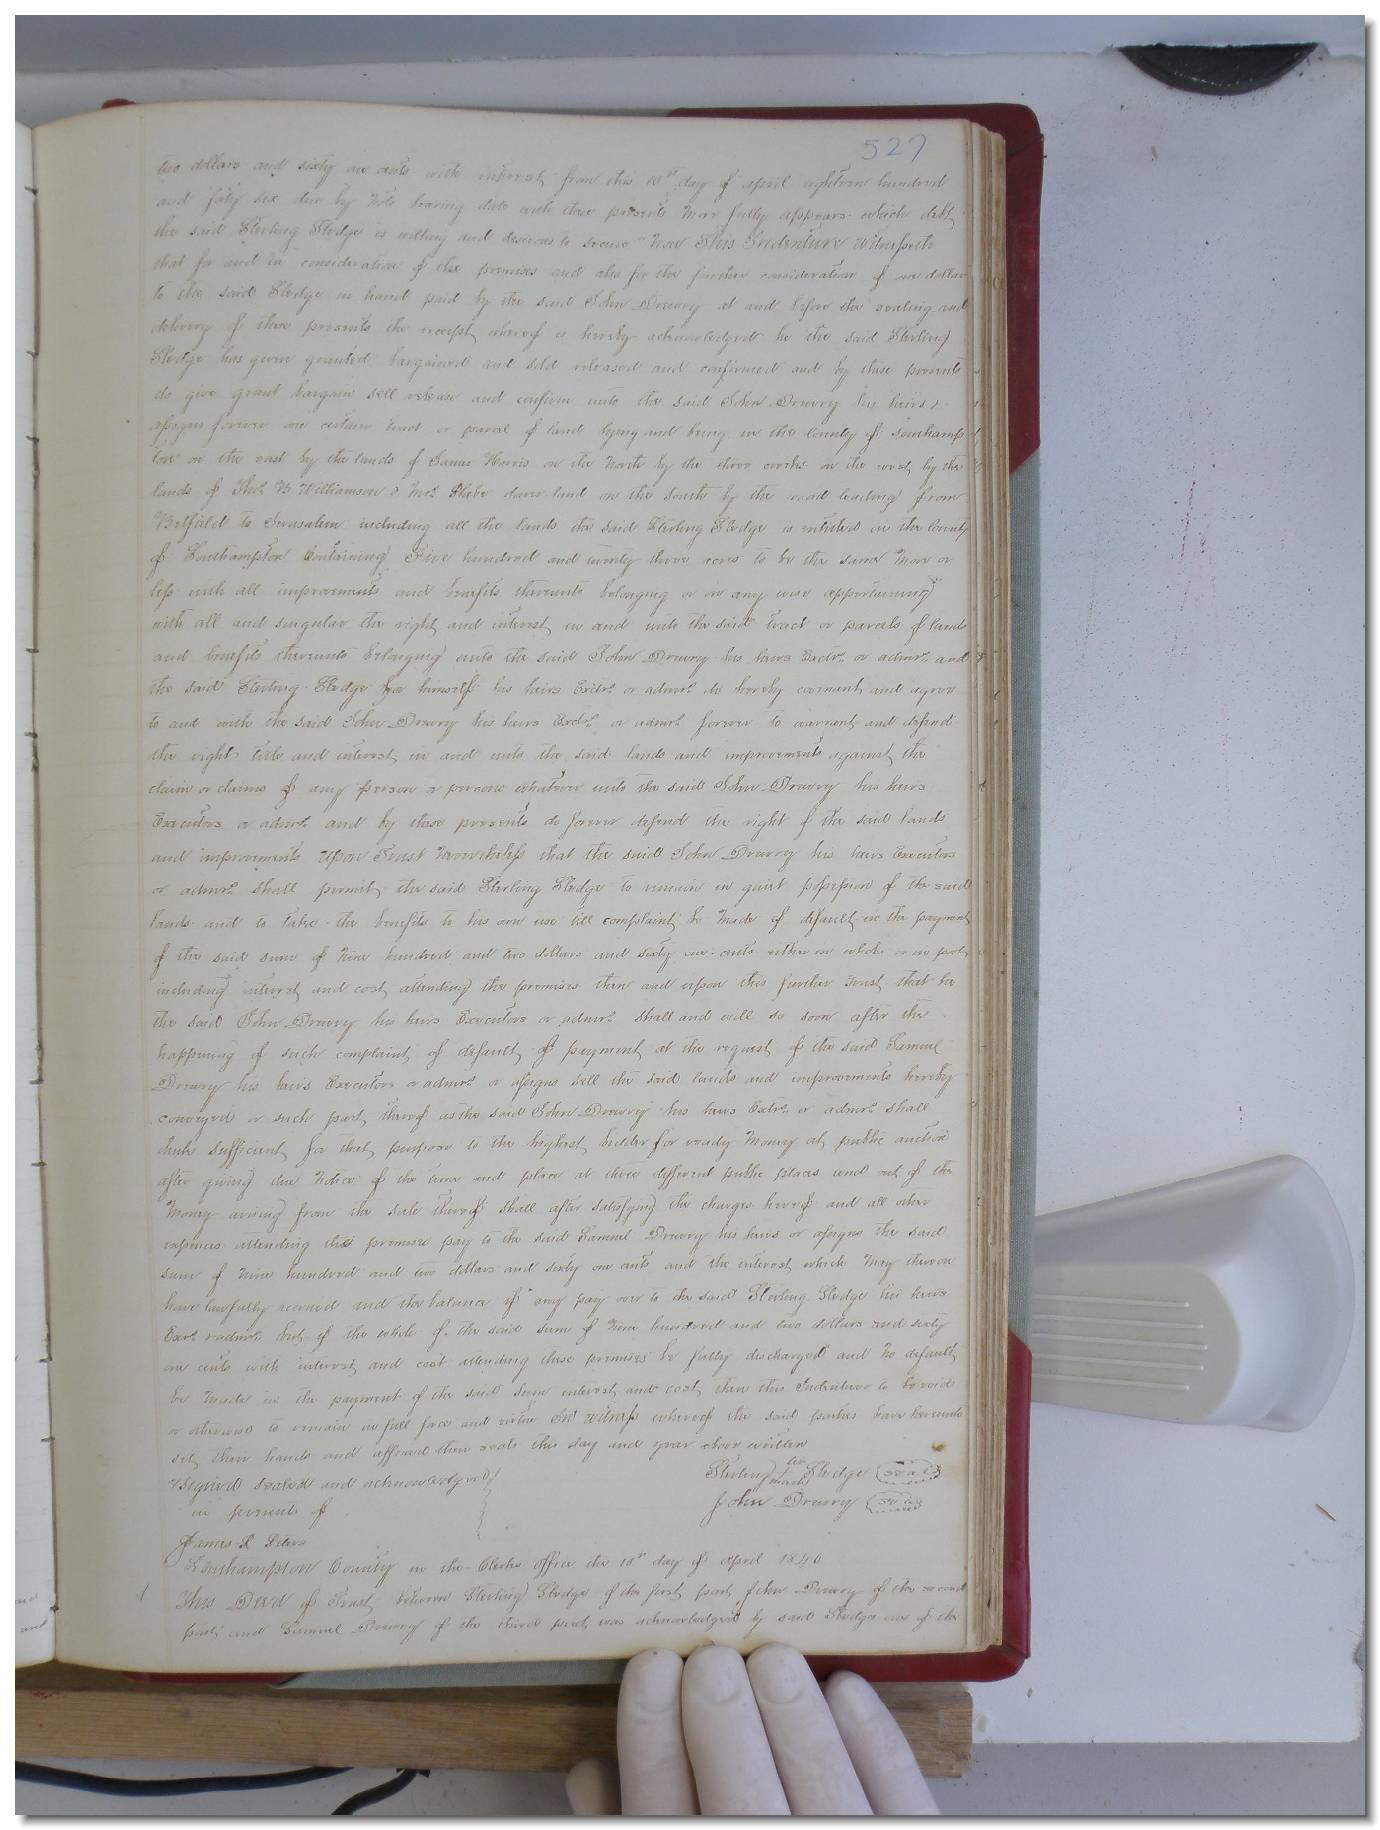 527
two dollars and sixty one cents with interest from this 10th day of april eighteen hundred
and forty six due by Note bearing date with these presents More fully appears which debt
the said Sterling Sledge is willing and desirous to secure Now This Indenture Witnesseth
that for and in consideration of the premises and also for the further consideration of one dollar
to the said Sledge in hand paid by the said John Drewry at and before the sealing and
delivery of these presents the receipt whereof is hereby acknowledged he the said Sterling
Sledge has given granted bargained and sold released and confirmed and by these presents
do give grant bargain sell release and confirm unto the said John Drewry his heirs &
assigns forever one certain tract or parcel of land lying and being in the County of Southamp
ton on the east by the lands of James Harris on the North by the three creeks on the west by the
lands of Thos B Williamson & Mrs dower land on the south by the road leading from
Belfield to Jerusalem including all the lands the said Sterling Sledge is entitled in the County
of Southampton Containing Five hundred and twenty three acres to be the same More or
less with all improvements and benefits thereunto belonging or in any wise appertaining
with all and singular the right and interest in and unto the said tract or parcels of lands
and benefits thereunto belonging unto the said John Drewry his heirs Exctrs or admrs and
the said Sterling Sledge for himself his heirs Exctrs or admrs do hereby covenant and agree
to and with the said John Drewry his heirs Exctrs or admrs forever to warrant and defend
the right title and interest in and unto the said lands and improvements against the
claim or claims of any person or persons whatever unto the said John Drewry his heirs
Executors or admrs and by these presents do forever defend the right of the said lands
and improvements Upon Trust Nevertheless that the said John Drewry his heirs Executors
or admrs shall permit the said Sterling Sledge to remain in quiet possession of the said
lands and to take the benefits to his own use till complaint be Made of default in the payment
of the said sum of Nine hundred and two dollars and sixty one cents either in whole or in part
including interest and cost attending the premises then and upon this further trust that he
the said John Drewry his heirs Executors or admrs shall and will so soon after the
happening of such complaint of default of payment at the request of the said Samuel
Drewry his heirs Executors or admrs or assigns sell the said lands and improvements hereby
conveyed or such part thereof as the said John Drewry his heirs Exctrs or admrs shall
think sufficient for that purpose to the highest bidder for ready Money at public auction
after giving due Notice of the time and place at three different public places and out of the
Money arising from the sale thereof shall after satisfying the charges hereof and all other
expenses attending this premises pay to the said Samuel Drewry his heirs or assigns the said
sum of Nine hundred and two dollars and sixty one cents and the interest which May thereon
have lawfully accrued and the balance if any pay over to the said Sterling Sledge his heirs
Exors or admrs but if the whole of the said sum of Nine hundred and two dollars and sixty
one cents with interest and cost attending these premises be fully discharged and No default
be Made in the payment of the said Sum interest and cost then this Indenture to be void
or otherwise to remain in full force and virtue In witness whereof the said parties have hereunto
set their hands and affixed their seals this day and year above written
Signed sealed and acknowledged
in presents of
Sterling his + mark Sledge seal
John Drewry seal
James R Peters
Southampton County in the Clerks office the 10th day of April 1846
This Deed of Trust between Sterling Sledge of the first part John Drewry of the second
part and Samuel Drewry of the third part was acknowledged by said Sledge one of the